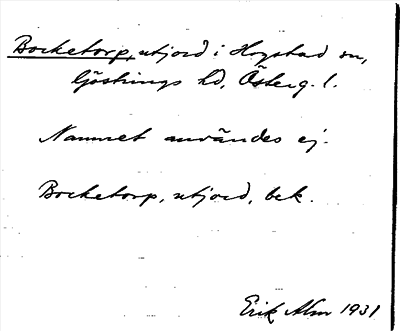 Bocketorp, utjord i Hogstad sn,
Göstrings hd, Österg. l.
Namnet användes ej.
Bocketorp, utjord, bek.
Erik Alm 1931